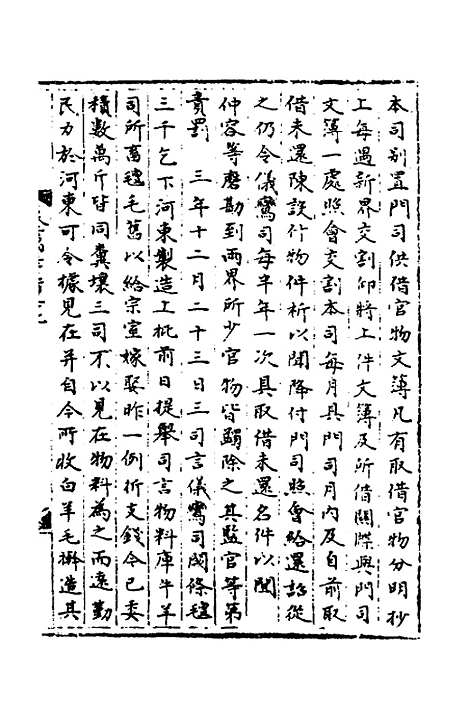 本司別置門司供借官物文簿凡有取借官物分明抄
上每遇新界交割仰將上件文簿及所借關牒與門司
文簿一處照會交割本司每月具門司月內及自前取
借未還陳設什物件析以聞降付門司照會給還詔從
之仍令儀鸞司每半年一次具取借未還名件以聞
仲容等磨勘到兩界所少官物皆蠲除之其監官等第
責罰　三年十二月二十三日三司言儀鸞司闕條毯
三千乞下河東製造上批前日提舉司言物料庫牛羊
司所畜毯毛舊以給宗室嫁娶昨一例折支錢令已委
積數萬斤皆同糞壤三司不以見在物料為之而遠勤
民力於河東可令據見在并自今所收白羊毛㪺造其